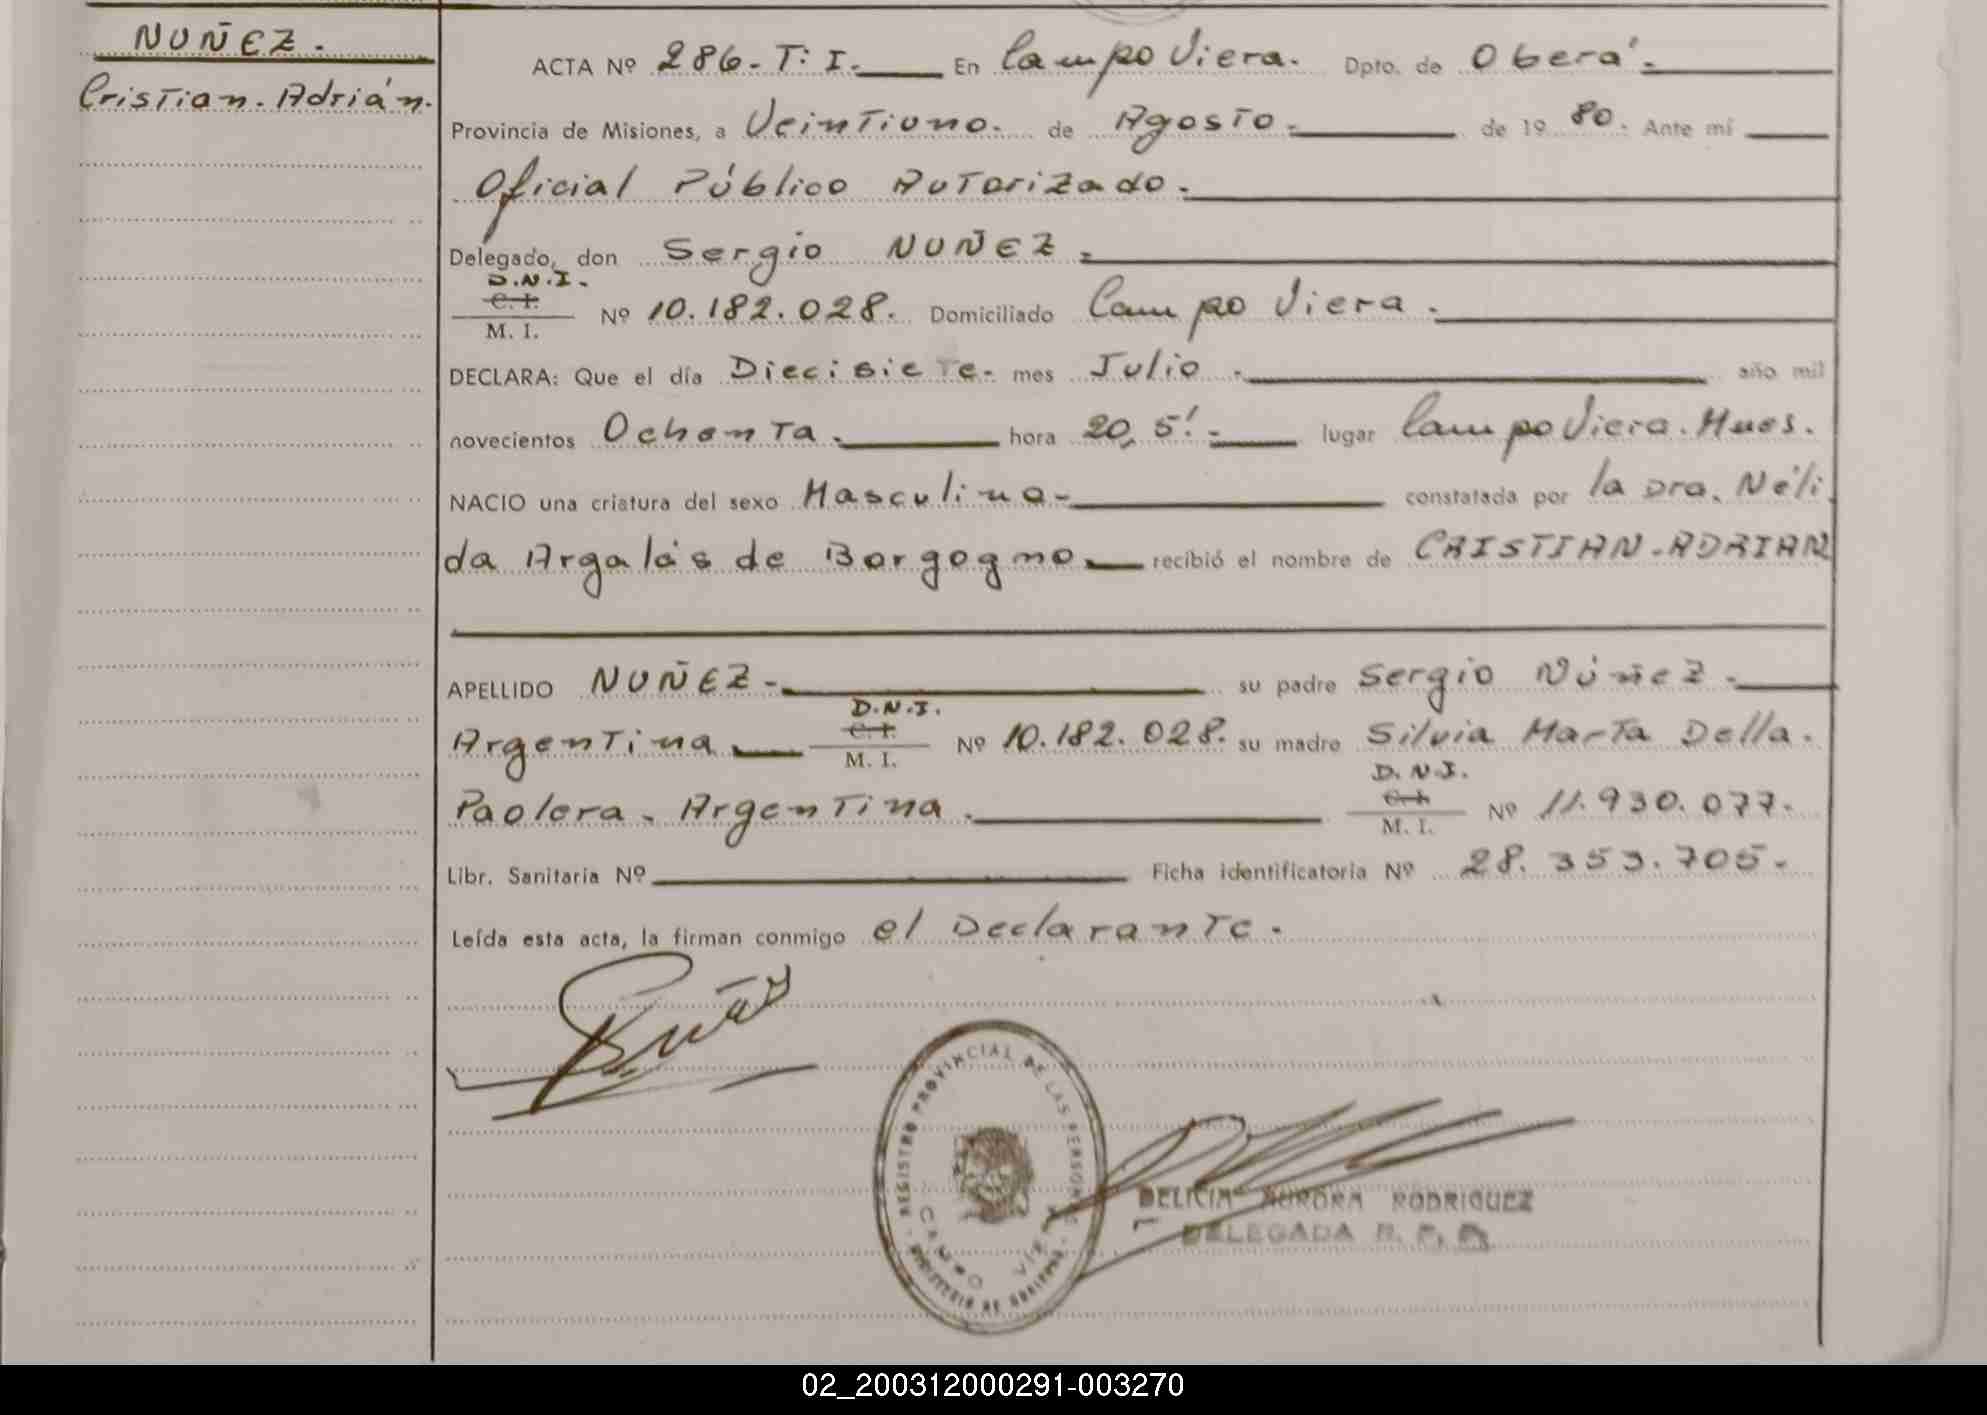 NUÑEZ.
Cristian. Adrián.
ACTA Nº 286. T: I. En Campo Viera. Dpto. de Oberá.
Provincia de Misiones, a Veintiuno. de Agosto. de 19 80. Ante mí
Oficial Público Autorizado.
Delegado, don Sergio NUÑEZ.
D.N.I.
C. I.
M. I. Nº 10.182.028. Domiciliado Campo Viera.
DECLARA: Que el día Diecisiete. mes Julio. año mil
novecientos Ochenta. hora 20,5'. lugar Campo Viera. Mnes.
NACIO una criatura del sexo Masculino- constatada por la Dra. Néli
da Argalás de Borgogno. recibió el nombre de CRISTIAN-ADRIAN
APELLIDO NUÑEZ- su padre Sergio Núñez.
D.N.I.
C. I.
Argentina M. I. Nº 10.182.028. su madre Silvia Marta Della.
D.N.I.
C. I.
Paolera. Argentina. M. I. Nº 11.930.077.
Libr. Sanitaria Nº Ficha identificatoria Nº 28.353.705.
Leída esta acta, la firman conmigo el Declarante.
REGISTRO PROVINCIAL DE LAS PERSONAS
CAMPO VIERA
DELICIA AURORA RODRIGUEZ
DELEGADA R. P. P.
02_200312000291-003270